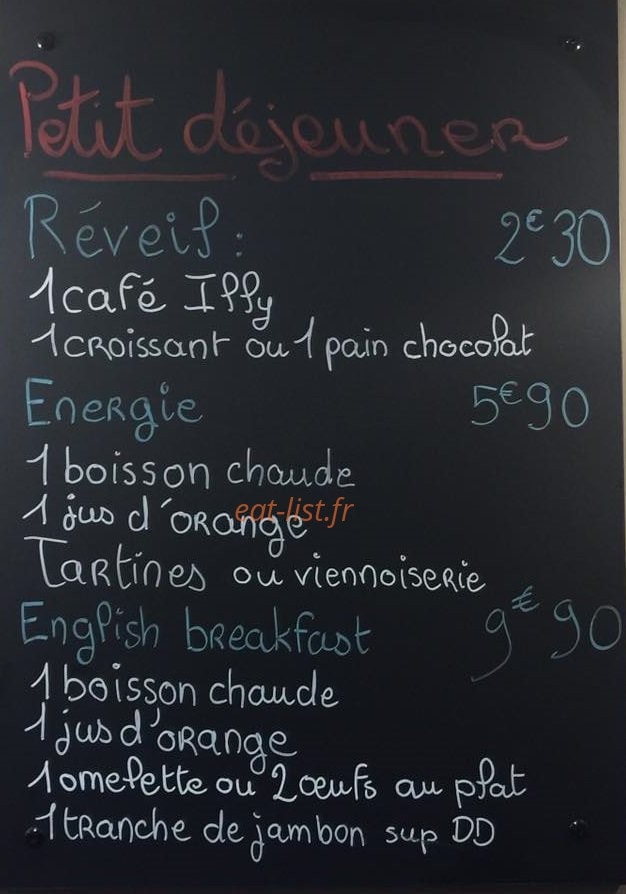 Petit déjeuner
Réveil : 2€30
1 café Illy
1 croissant ou 1 pain chocolat
Energie 5€90
1 boisson chaude
1 jus d'orange
eat-list.fr
Tartines ou viennoiserie
English breakfast 9€90
1 boisson chaude
1 jus d'orange
1 omelette ou 2 œufs au plat
1 tranche de jambon sup DD